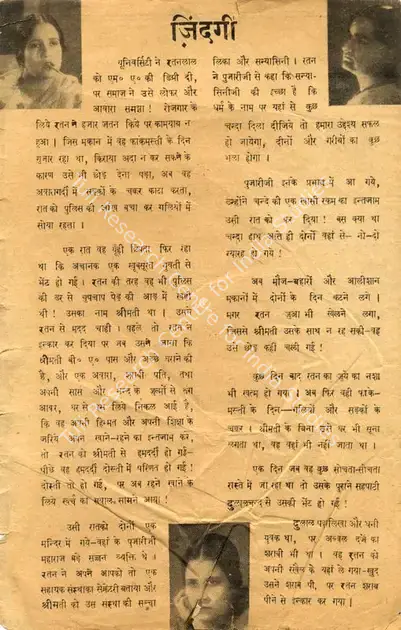 ज़िंदगी
यूनिवर्सिटी ने रतनलाल
को एम० ए० की डिग्री दी,
पर समाज ने उसे लोफर और
आवारा समझा! रोजगार के
लिये रतन ने हजार जतन किये पर कामयाब न
हुआ। जिस मकान में वह फाकेमस्ती के दिन
गुजार रहा था, किराया अदा न कर सकने के
कारण उसे भी छोड़ देना पड़ा, अब वह
अवारागर्दी में सड़कों के चक्कर काटा करता,
रात को पुलिस की आंख बचा कर गलियों में
सोया रहता।
एक रात वह यूंही टहल फिर रहा
था कि अचानक एक खूबसूरत युवती से
भेंट हो गई। रतन की तरह वह भी पुलिस
की डर से चुपचाप पेड़ की आड़ में खड़ी
थी! उसका नाम श्रीमती था। उसने
रतन से मदद चाही। पहले तो रतन ने
इन्कार कर दिया पर जब उसने जाना कि
श्रीमती बी० ए० पास और अच्छे घराने की
है, और एक अवारा, शराबी पति, तथा
अपनी सास और ननद के जुल्मों से तंग
आकर, घर से इस लिये निकल आई है,
कि वह अपनी हिम्मत और अपनी शिक्षा के
जरिये अपने खाने-रहने का इन्तजाम करे,
तो रतन को श्रीमती से हमदर्दी हो गई-
पीछे वह हमदर्दी दोस्ती में परिणत हो गई!
दोस्ती तो हो गई, पर अब रहने खाने के
लिये खर्च का सवाल सामने आया!
उसी रात को दोनों एक
मन्दिर में गये-वहाँ के पुजारीजी
महाराज बड़े सज्जन व्यक्ति थे।
रतन ने अपने आपको तो एक
सहायक संस्था का सेक्रेटरी बताया और
श्रीमती को उस संस्था की सञ्चा
लिका और सन्यासिनी। रतन
ने पुजारीजी से कहा कि सन्या-
सिनीजी की इच्छा है कि
धर्म के नाम पर यहाँ से कुछ
चन्दा दिला दीजिये तो हमारा उद्देश्य सफल
हो जायेगा, दीनों और गरीबों का कुछ
भला होगा।
पुजारीजी इनके प्रभाव में आ गये,
उन्होंने चन्दे की एक खासी रकम का इन्तजाम
उसी रात को कर दिया! बस क्या था
चन्दा हाथ आते ही दोनों वहां से- नौ-दो
ग्यारह हो गये!
अब मौज-बहारों और आलीशान
मकानों में दोनों के दिन कटने लगे।
मगर रतन जुआ भी खेलने लगा,
जिससे श्रीमती उसके साथ न रह सकी-वह
उसे छोड़ कहीं चली गई!
कुछ दिन बाद रतन का जुये का नशा
भी खत्म हो गया। अब फिर वही फाके-
मस्ती के दिन-गलियों और सड़कों के
चक्कर। श्रीमती के बिना उसे घर भी सूना
लगता था, वह वहां भी नहीं जाता था।
एक दिन जब वह कुछ सोचता-सोचता
रास्ते में जा रहा था तो उसके पुराने सहपाठी
दुलालचन्द से उसकी भेंट हो गई!
दुलाल पढ़ालिखा और धनी
युवक था, पर अव्वल दर्जे का
शराबी भी था। वह रतन को
अपनी रखैल के यहां ले गया-खुद
उसने शराब पी, पर रतन शराब
पीने से इन्कार कर गया।